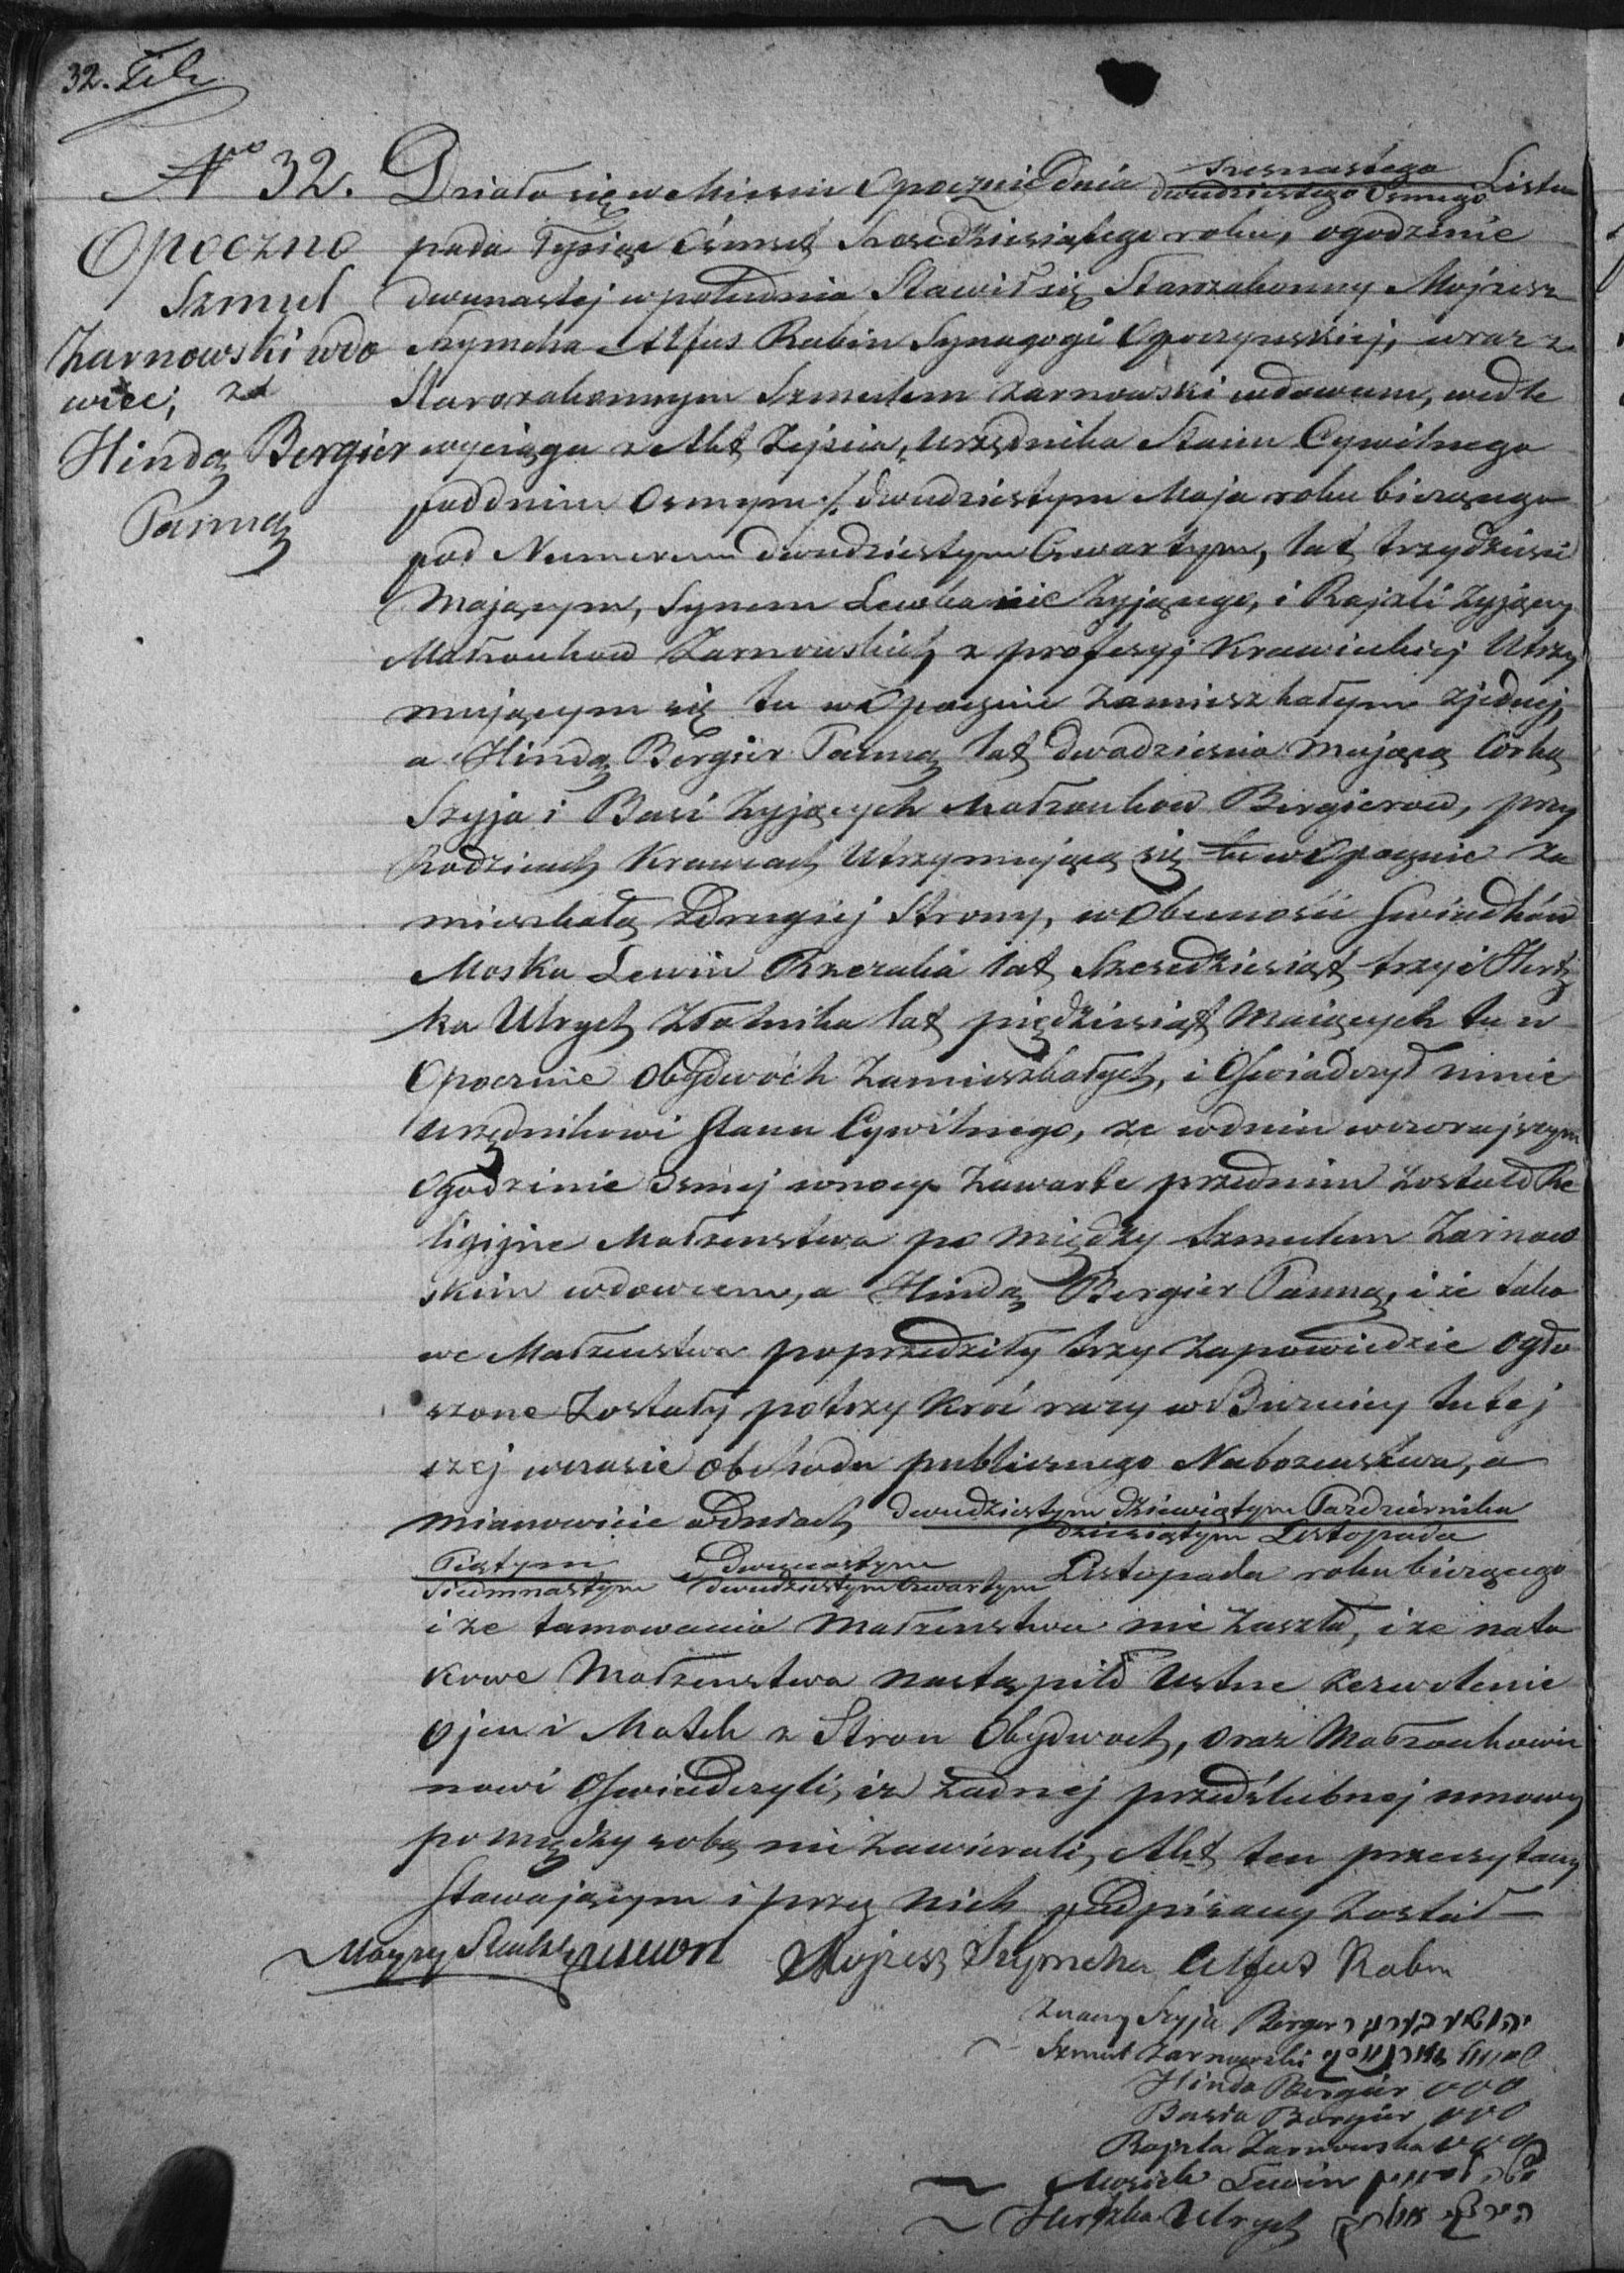 32. Żeb
No 32.
Opoczno
Szmul
Zarnowski wdo
wiec, z
Hindą Bergier
Panną
Działo się w Mieście Opocznie dnia Szesnastego / dwudziestego Osmego Listo
pada Tysiąc Ośmset Szescdziesiątego roku, o godzinie
dwunastej w południe Stawił się Starozakonny Mojżesz
Szymcha Alfus Rabin Synagogi Opoczynskiej, wraz z
Starozakonnym Szmulem Zarnowski wdowcem, wedle
wyciągu z Akt Zejścia, Urzędnika Stanu Cywilnego
pod dniem Osmym /: dwudziestym Maja roku bieżącego
pod Numerem dwudziestym Czwartym, lat trzydzieści
Mającym, Synem Lewka nie żyjącego, i Rajzli Żyjącej
Małżonkow Zarnowskich z professyj Krawieckiej Utrzy
mującym się tu w Opocznie zamieszkałym z jednej,
a Hindą Bergier Panną lat dwadzieścia mającą Corką
Szyja i Basi Żyjących Małżonkow Bergierow, przy
Rodzicach Krawcach Utrzymującą się tu w Opocznie za
mieszkałą z drugiej Strony, w Obecności Świadków
Moska Lewin Rzezaka lat Szescdziesiąt trzy i Hersz
ka Ulrych Złotnika lat pięćdziesiąt Maiących tu w
Opocznie Obydwóch Zamieszkałych, i Oświadczył mnie
Urzędnikowi Stanu Cywilnego, że w dniu wczorajszym
o godzinie Osmej w nocy Zawarte przed nim zostało Re
ligijne Małżenstwo po między Szmulem Zarnow
skim wdowcem, a Hindą Bergier Panną, i że tako
we Małżenstwo poprzedziły trzy zapowiedzie ogło
szone Zostały po trzy kroć razy w Buźnicy tutej
szej w czasie Obchodu publicznego Nabożenstwa, a
mianowicie w Dniach dwudziestym dziewiątym Pazdziernika / dziesiątym Listopada
Piątym / Siedmnastym i Dwunastym / dwudziestym Czwartym Listopada roku bieżącego
i że tamowania Małżenstwa nie Zaszło, i że na ta
kowe Małżenstwo nastąpiło Ustne zezwolenie
Ojca i Matek z Stron Obydwoch, Oraz Małżonkowie
nowi Oświadczyli, iż żadnej przedślubnej umowy
po między sobą nie Zawierali, Akt ten przeczytany
Stawającym i przez nich podpisany Został
Mojżesz Szymcha Alfus Rabin
Szyja Berger יהושע בערגער
Szmul Zarnowski שמואל
Hinda Bergier OOO
Basia Bergier OOO
Rajzla Zarnowska OOO
Mosiek Lewin
Herszka Ulrych